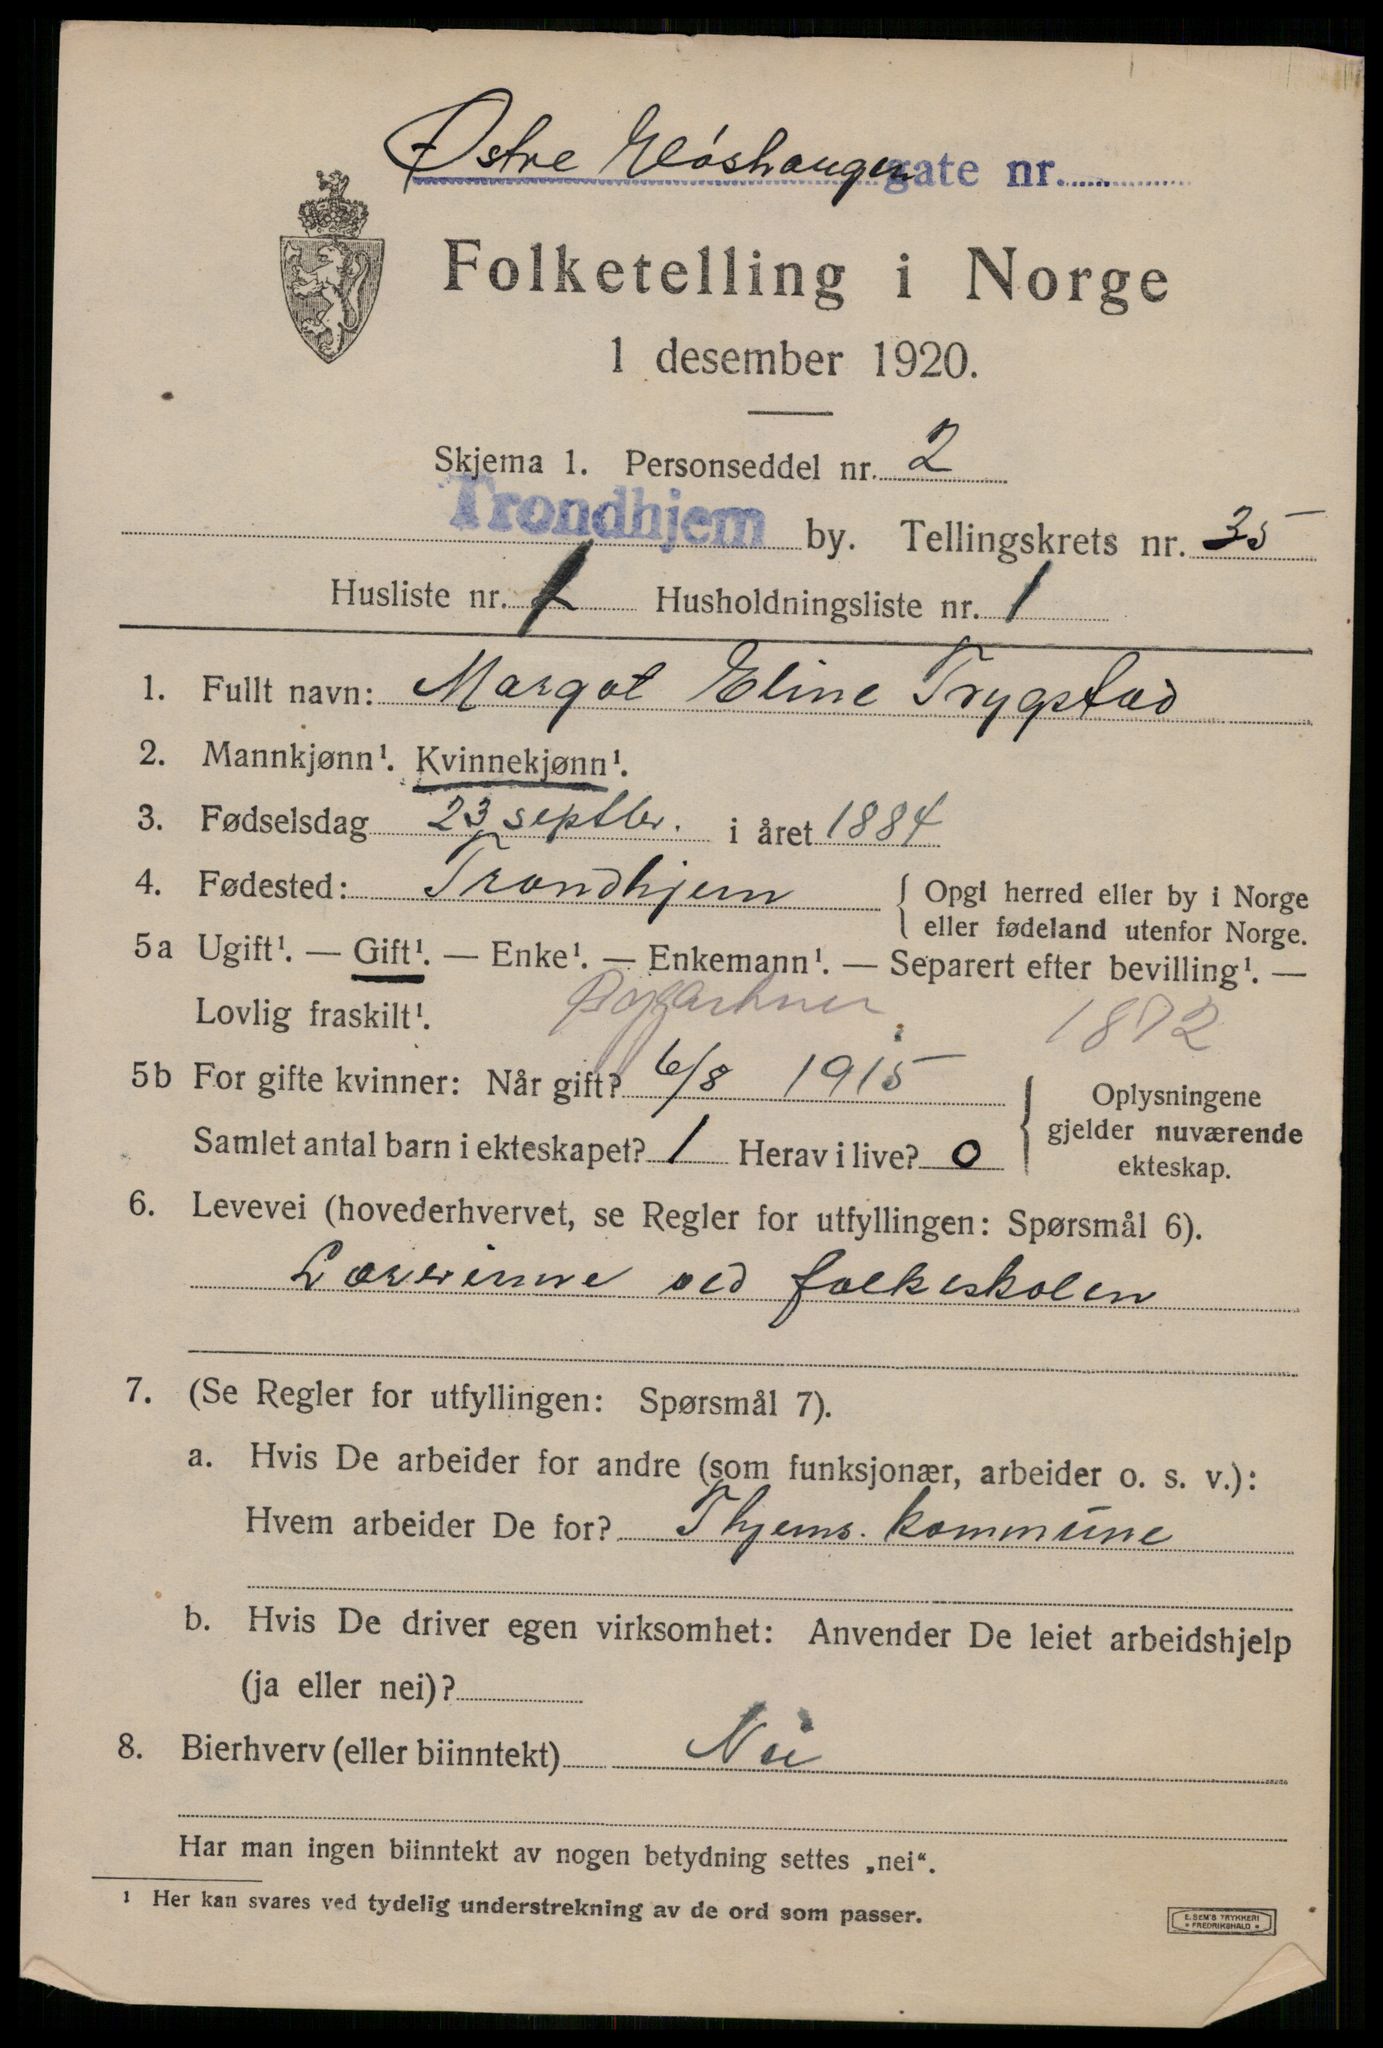 Østre Gløshaugen gate nr.
Folketelling i Norge
1 desember 1920.
Skjema 1. Personseddel nr. 2
Trondhjem by. Tellingskrets nr. 35
Husliste nr. 1 Husholdningsliste nr. 1
1. Fullt navn: Margot Eline Trygstad
2. Mannkjønn¹. Kvinnekjønn¹.
3. Fødselsdag 23 septbr. i året 1884
4. Fødested: Trondhjem { Opgi herred eller by i Norge
eller fødeland utenfor Norge.
5a Ugift¹. — Gift¹. — Enke¹. — Enkemann¹. — Separert efter bevilling¹. —
Lovlig fraskilt¹. 1872
5b For gifte kvinner: Når gift? 6/8 1915 { Oplysningene
gjelder nuværende
ekteskap.
Samlet antal barn i ekteskapet? 1 Herav i live? 0
6. Levevei (hovederhvervet, se Regler for utfyllingen: Spørsmål 6).
Lærerinne ved folkeskolen
7. (Se Regler for utfyllingen: Spørsmål 7).
a. Hvis De arbeider for andre (som funksjonær, arbeider o. s. v.):
Hvem arbeider De for? Thjems. kommune
b. Hvis De driver egen virksomhet: Anvender De leiet arbeidshjelp
(ja eller nei)?
8. Bierhverv (eller biinntekt) Nei
Har man ingen biinntekt av nogen betydning settes „nei“.
¹ Her kan svares ved tydelig understrekning av de ord som passer.
E. SEM'S TRYKKERI
FREDRIKSHALD